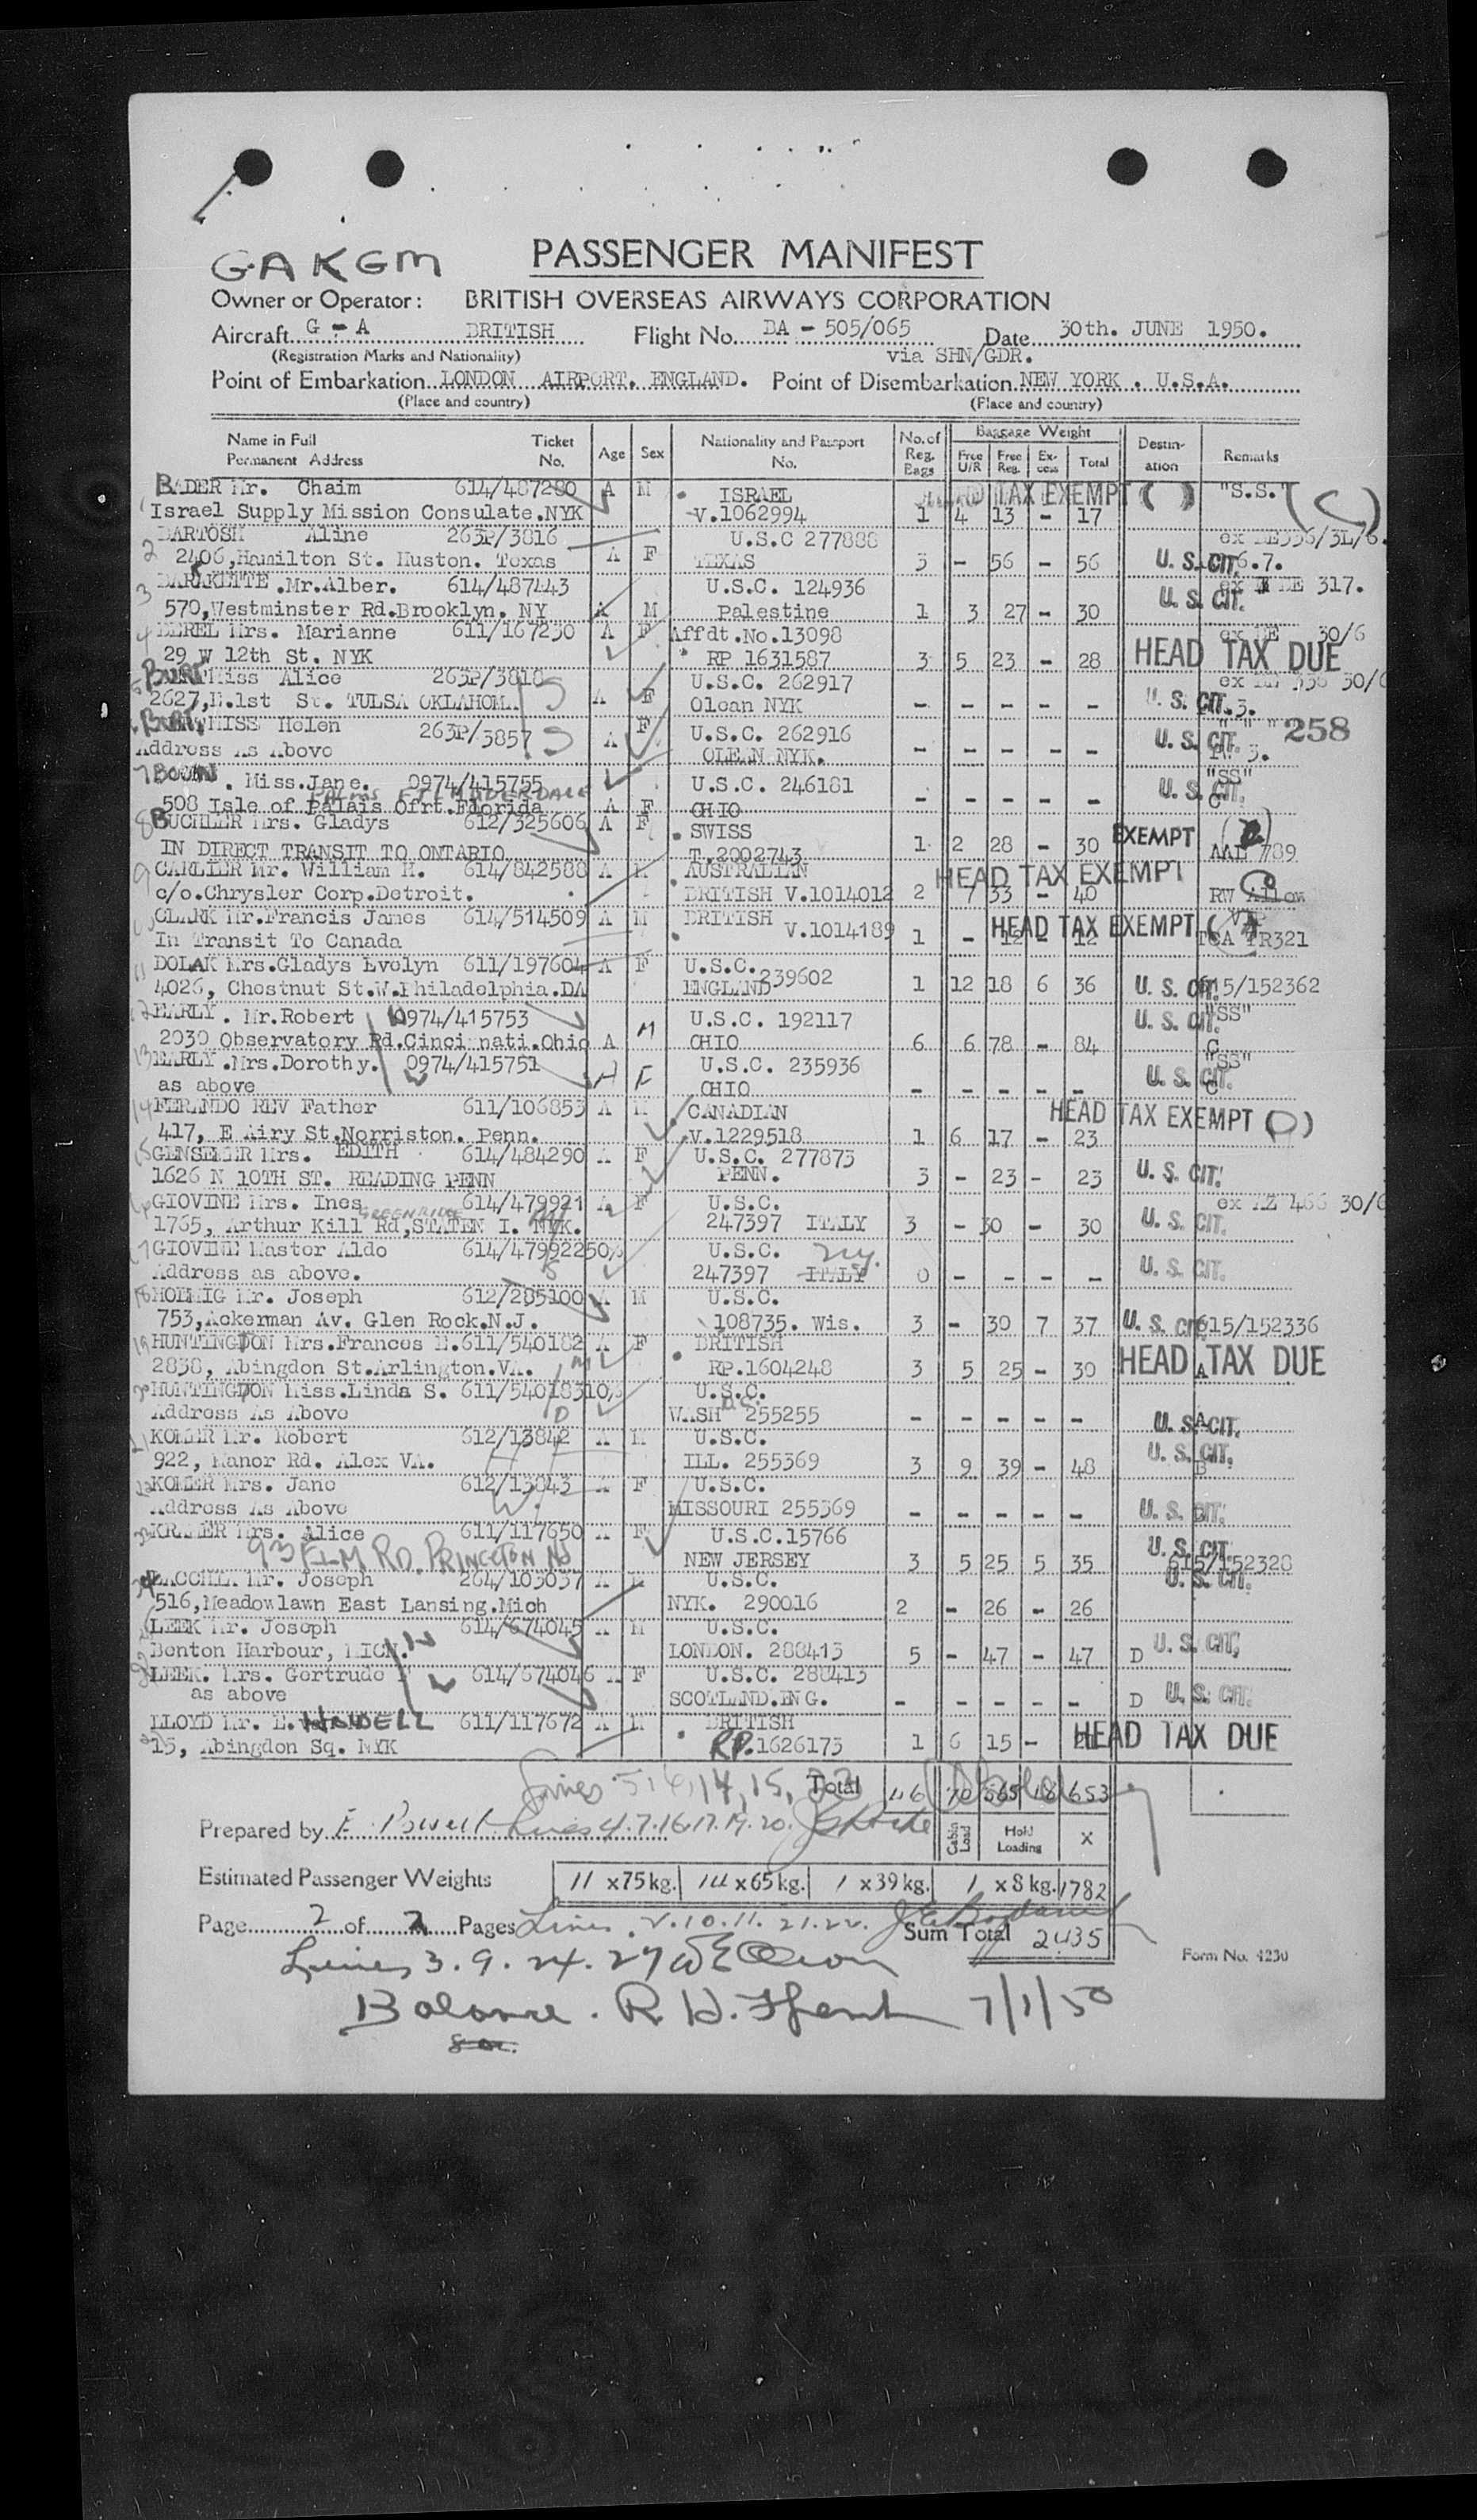 GAKGM
PASSENGER MANIFEST
Owner or Operator: BRITISH OVERSEAS AIRWAYS CORPORATION
Aircraft G - A BRITISH Flight No. DA - 505/065 Date 30th. JUNE 1950.
(Registration Marks and Nationality) via SHN/GDR.
Point of Embarkation LONDON AIRPORT. ENGLAND. Point of Disembarkation NEW YORK . U.S.A.
(Place and country) (Place and country)
Name in Full Ticket Age Sex Nationality and Passport No. of Baggage Weight Destin- Remarks
Permanent Address No. No. Reg. Bags Free U/R Free Reg. Ex-cess Total ation
1 BADER Mr. Chaim 614/487280 A M ISRAEL TAX EXEMPT ( ) "S.S." (C)
Israel Supply Mission Consulate.NYK V.1062994 1 4 13 - 17
2 BARTOSH Aline 263P/3816 U.S.C 277888
2406,Hamilton St. Huston. Texas A F TEXAS 3 - 56 - 56 U. S. CIT. 6.7.
3 .Mr.Alber. 614/487443 U.S.C. 124936 ex 317.
570,Westminster Rd.Brooklyn. NY A M Palestine 1 3 27 - 30 U. S. CIT.
4 Mrs. Marianne 611/167230 A F Affdt.No.13098 30/6
29 W 12th St. NYK RP 1631587 3 5 23 - 28 HEAD TAX DUE
5 BURT Miss Alice 263P/3818 U.S.C. 262917 ex 30/6
2627,E.1st St. TULSA OKLAHOMA A F Olean NYK - - - - - U. S. CIT. 3.
BURT MISS Helen 263P/3857 A F U.S.C. 262916 " " " 258
Address As Above OLEAN NYK. - - - - - U. S. CIT. 3.
7 . Miss.Jane. 0974/415755 U.S.C. 246181 "SS"
PALMS FT LAUDERDALE
508 Isle of Palais Ofrt.Florida A F OHIO - - - - - U. S. CIT. C
8 BUCHLER Mrs. Gladys 612/325606 A F SWISS
IN DIRECT TRANSIT TO ONTARIO T.2002743 1 2 28 - 30 EXEMPT AAL 789
9 CARLIER Mr. William H. 614/842588 A M AUSTRALIAN HEAD TAX EXEMPT C
c/o.Chrysler Corp.Detroit. BRITISH V.1014012 2 7 33 - 40 RW Allow
CLARK Mr.Francis James 614/514509 A M BRITISH HEAD TAX EXEMPT VIP
In Transit To Canada V.1014189 1 - 12 - 12 TCA TR321
11 DOLAK Mrs.Gladys Evelyn 611/197604 A F U.S.C. 239602
4026, Chestnut St.W.Philadelphia.DA ENGLAND 1 12 18 6 36 U. S. CIT. 615/152362
12 EARLY . Mr.Robert 0974/415753 M U.S.C. 192117 "SS"
2030 Observatory Rd.Cincinnati.Ohio A OHIO 6 6 78 - 84 U. S. CIT. C
13 EARLY .Mrs.Dorothy. 0974/415751 A F U.S.C. 235936 "SS"
as above OHIO - - - - - U. S. CIT. C
14 FERANDO REV Father 611/106853 A M CANADIAN HEAD TAX EXEMPT (D)
417, E Airy St.Norriston. Penn. V.1229518 1 6 17 - 23
15 GENSEMER Mrs. EDITH 614/484290 A F U.S.C. 277873
1626 N 10TH ST. READING PENN PENN. 3 - 23 - 23 U. S. CIT.
GIOVINE Mrs. Ines 614/479921 A F U.S.C. ex AZ 466 30/6
GREENRIDGE
1765, Arthur Kill Rd,STATEN I. NYK. 247397 ITALY 3 - 30 - 30 U. S. CIT.
GIOVINE Master Aldo 614/479922 U.S.C. ny.
Address as above. 247397 ITALY 0 - - - - U. S. CIT.
18 Mr. Joseph 612/285100 A M U.S.C.
753,Ackerman Av. Glen Rock.N.J. 108735. Wis. 3 - 30 7 37 U. S. CIT. 615/152336
19 HUNTINGDON Mrs.Frances E.611/540182 A F BRITISH
2838, Abingdon St.Arlington.VA. RP.1604248 3 5 25 - 30 HEAD TAX DUE A
20 HUNTINGDON Miss.Linda S. 611/540183 U.S.C.
Address As Above WASH D.C. 255255 - - - - - U. S. CIT. A
21 KOMER Mr. Robert 612/13842 A M U.S.C.
922, Manor Rd. Alex VA. ILL. 255369 3 9 39 - 48 U. S. CIT. B
22 KOMER Mrs. Jane 612/13843 A F U.S.C.
Address As Above MISSOURI 255369 - - - - - U. S. CIT.
KRAMER Mrs. Alice 611/117650 A F U.S.C.15766
93 ELM RD. PRINCETON NJ NEW JERSEY 3 5 25 5 35 U. S. CIT. 615/152328
Mr. Joseph 264/103037 A M U.S.C. U. S. CIT.
516,Meadowlawn East Lansing.Mich NYK. 290016 2 - 26 - 26
LEEK Mr. Joseph 614/674045 A M U.S.C.
Benton Harbour, MICH. LONDON. 288413 5 - 47 - 47 D U. S. CIT.
LEEK. Mrs. Gertrude 614/674046 A F U.S.C. 288413
as above SCOTLAND.ENG. - - - - - D U. S. CIT.
LLOYD Mr. E. 611/117672 A M BRITISH
15, Abingdon Sq. NYK RP.1626173 1 6 15 - 21 HEAD TAX DUE
Lines 5, 6, 14, 15, 23 Total 46 70 565 18 653
Prepared by E. Powell Lines 4.7.16.17.19.20. Cabin Load Hold Loading X
Estimated Passenger Weights 11 x75kg. 14 x65kg. 1 x39kg. 1 x8kg. 1782
Page 2 of 2 Pages Lines 2.10.11.21.22. Sum Total 2435
Form No. 4230
Lines 3. 9. 24. 27
Balance. R. H. 7/1/50